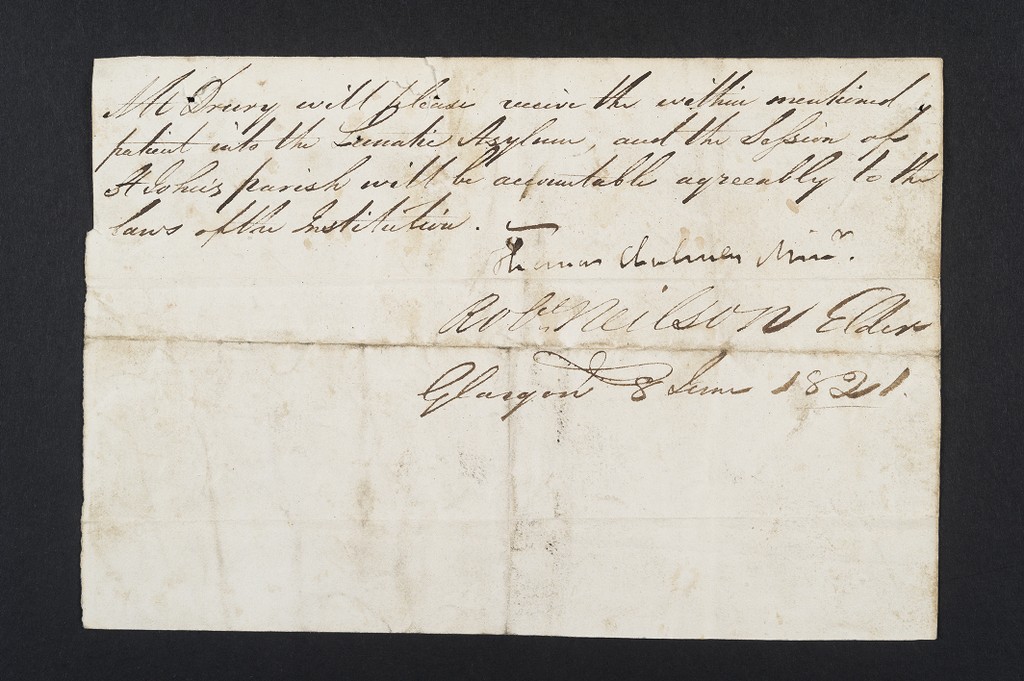 Mr Drury will please receive the within mentioned
patient into the Lunatic Asylum, and the Session of
St John's parish will be accountable agreeably to the
laws of the Institution.
Thomas Chalmers Minr.
Robt. Neilson Elder
Glasgow 8 June 1821.